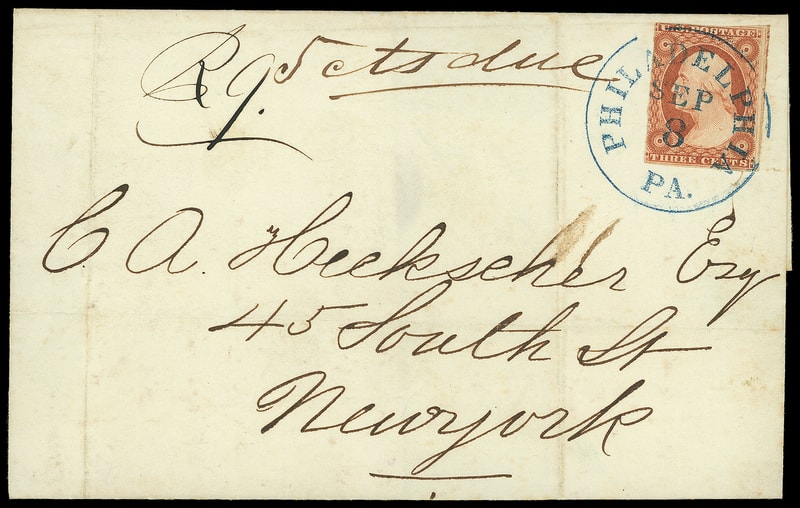 Rg. 5 cts due
U.S. POSTAGE
THREE CENTS
PHILADELPHIA
SEP
8
PA.
C. A. Heckscher Esq
45 South St
Newyork